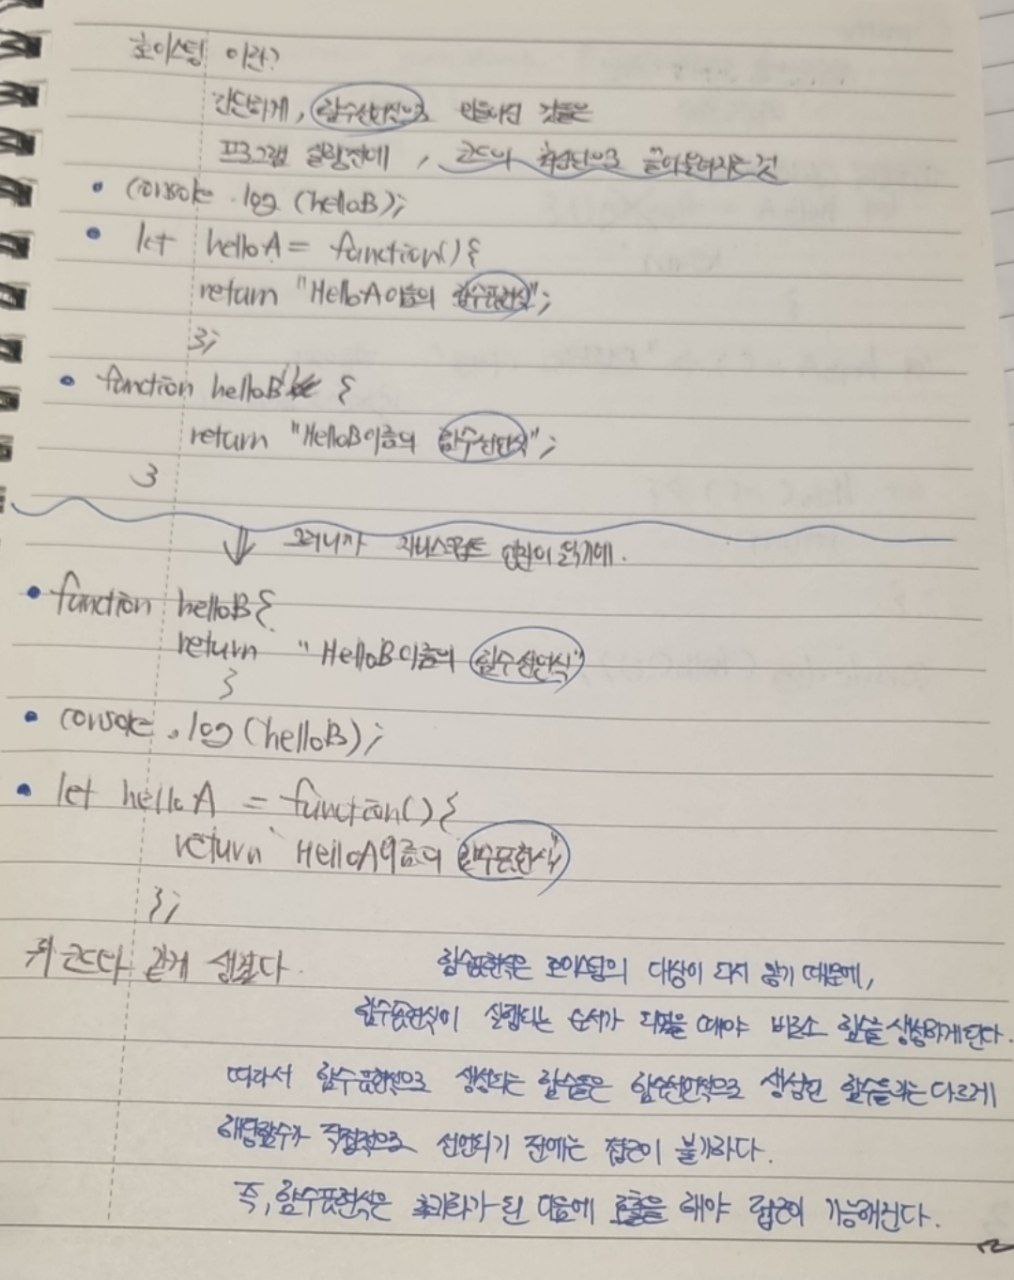 호이스팅 이란?
간단하게, 함수선언식으로 만들어진 것들은
프로그램 실행전에, 코드의 최상단으로 끌어올려지는 것
• console.log (helloB);
• let helloA = function(){
return "HelloA이름의 함수표현식";
};
• function helloB {
return "HelloB이름의 함수선언식";
}
그러니까 자바스크립트 엔진이 읽기에.
• function helloB{
return "HelloB이름의 함수선언식"
}
• console.log(helloB);
• let helloA = function(){
return HelloA이름의 함수표현식"
};
코드다 같게 생겼다.
함수표현식은 호이스팅의 대상이 되지 않기 때문에,
함수표현식이 실행되는 순서가 되었을 때야 비로소 함수를 생성하게된다.
따라서 함수표현식으로 생성되는 함수들은 함수선언식으로 생성된 함수들과는 다르게
해당함수가 직접적으로 선언되기 전에는 접근이 불가하다.
즉, 함수표현식은 초기화가 된 다음에 호출을 해야 접근이 가능해진다.